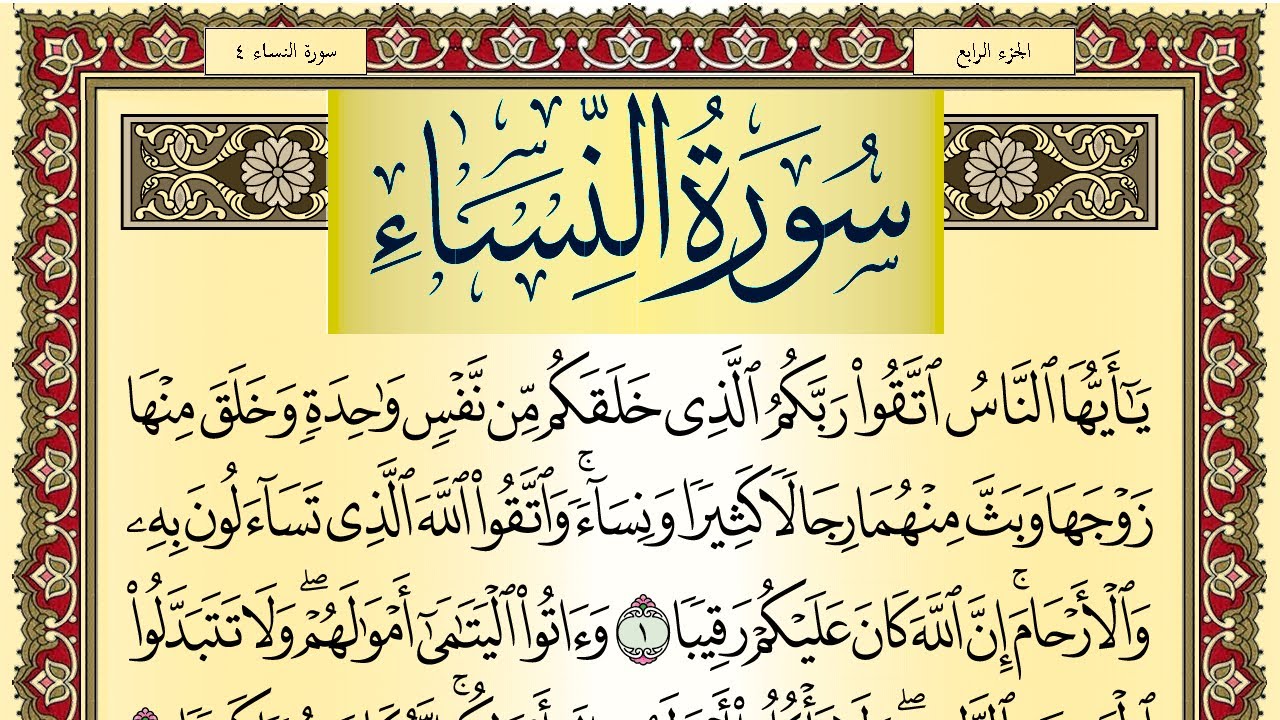 الجزء الرابع
سورة النساء ٤
سُورَةُ النِّسَاءِ
يَٰٓأَيُّهَا ٱلنَّاسُ ٱتَّقُوا۟ رَبَّكُمُ ٱلَّذِى خَلَقَكُم مِّن نَّفْسٍۢ وَٰحِدَةٍۢ وَخَلَقَ مِنْهَا
زَوْجَهَا وَبَثَّ مِنْهُمَا رِجَالًۭا كَثِيرًۭا وَنِسَآءًۭ ۚ وَٱتَّقُوا۟ ٱللَّهَ ٱلَّذِى تَسَآءَلُونَ بِهِۦ
وَٱلْأَرْحَامَ ۚ إِنَّ ٱللَّهَ كَانَ عَلَيْكُمْ رَقِيبًۭا ١ وَءَاتُوا۟ ٱلْيَتَٰمَىٰٓ أَمْوَٰلَهُمْ ۖ وَلَا تَتَبَدَّلُوا۟